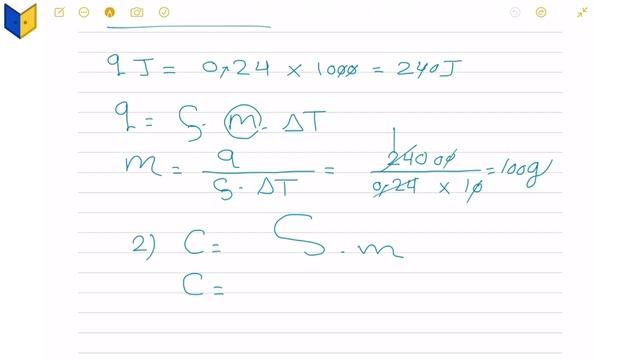 q J = 0,24 × 1000 = 240 J
q = S. m. ΔT
m = q / S. ΔT = 240 00 / 0,24 × 10 = 100g
2) C = S. m
C =